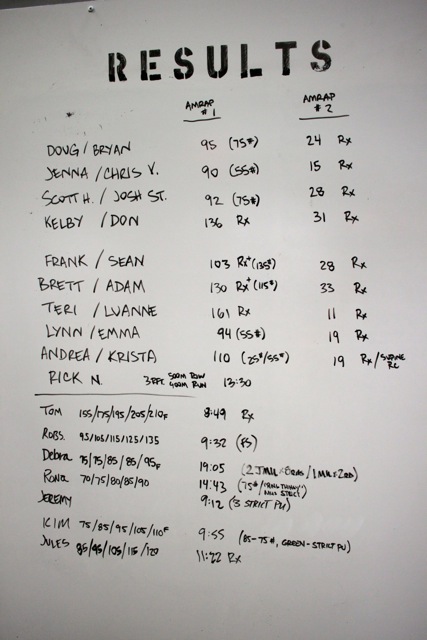 RESULTS
AMRAP #1 AMRAP #2
DOUG / BRYAN 95 (75#) 24 Rx
JENNA / CHRIS V. 90 (55#) 15 Rx
SCOTT H. / JOSH ST. 92 (75#) 28 Rx
KELBY / DON 136 Rx 31 Rx
FRANK / SEAN 103 Rx+ (135#) 28 Rx
BRETT / ADAM 130 Rx+ (115#) 33 Rx
TERI / LUANNE 161 Rx 11 Rx
LYNN / EMMA 94 (55#) 19 Rx
ANDREA / KRISTA 110 (25#/55#) 19 Rx / SUPINE
RICK N. 3 RFT 500M ROW 400M RUN 13:30
TOM 155/175/195/205/210F 8:49 Rx
ROBS. 95/105/115/125/135 9:32 (FS)
Debra 75/75/85/85/95F 19:05
Rona 70/75/80/85/90 14:43
JEREMY 9:12 (3 STRICT PU)
KIM 75/85/95/105/110F 9:55 (85-75#, GREEN-STRICT PU)
JULES 85/95/105/115/120 11:22 Rx